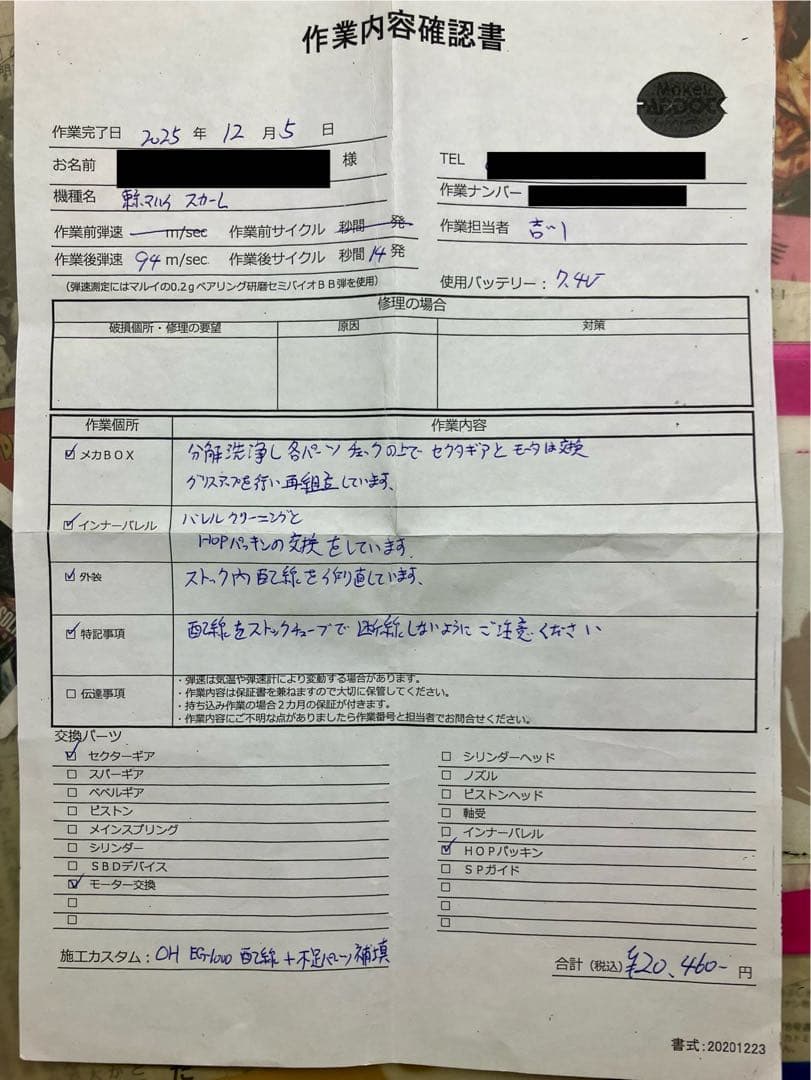 作業内容確認書
作業完了日 2025 年 12 月 5 日
お名前 様 TEL
機種名 東京マルイ スカーL 作業ナンバー
作業前弾速 m/sec 作業前サイクル 秒間 発 作業担当者 吉川
作業後弾速 94 m/sec 作業後サイクル 秒間 14 発
（弾速測定にはマルイの0.2gベアリング研磨セミバイオBB弾を使用） 使用バッテリー：7.4V
修理の場合
破損個所・修理の要望 原因 対策
作業個所 作業内容
☑ メカBOX 分解洗浄し各パーツチェックの上で セクタギアとモータは交換
グリスアップを行い再組立しています、
☑ インナーバレル バレルクリーニングと
HOPパッキンの交換をしています
☑ 外装 ストック内配線を作り直しています、
☑ 特記事項 配線をストックチューブで断線しないようにご注意ください
□ 伝達事項
・弾速は気温や弾速計により変動する場合があります。
・作業内容は保証書を兼ねますので大切に保管してください。
・持ち込み作業の場合２カ月の保証が付きます。
・作業内容にご不明な点がありましたら作業番号と担当者でお問合せください。
交換パーツ
☑ セクターギア
□ スパーギア
□ ベベルギア
□ ピストン
□ メインスプリング
□ シリンダー
□ ＳＢＤデバイス
☑ モーター交換
□
□
□ シリンダーヘッド
□ ノズル
□ ピストンヘッド
□ 軸受
□ インナーバレル
☑ ＨＯＰパッキン
□ ＳＰガイド
□
□
□
施工カスタム：OH EG1000 配線＋不足パーツ補填
合計（税込）¥20,460- 円
書式:20201223